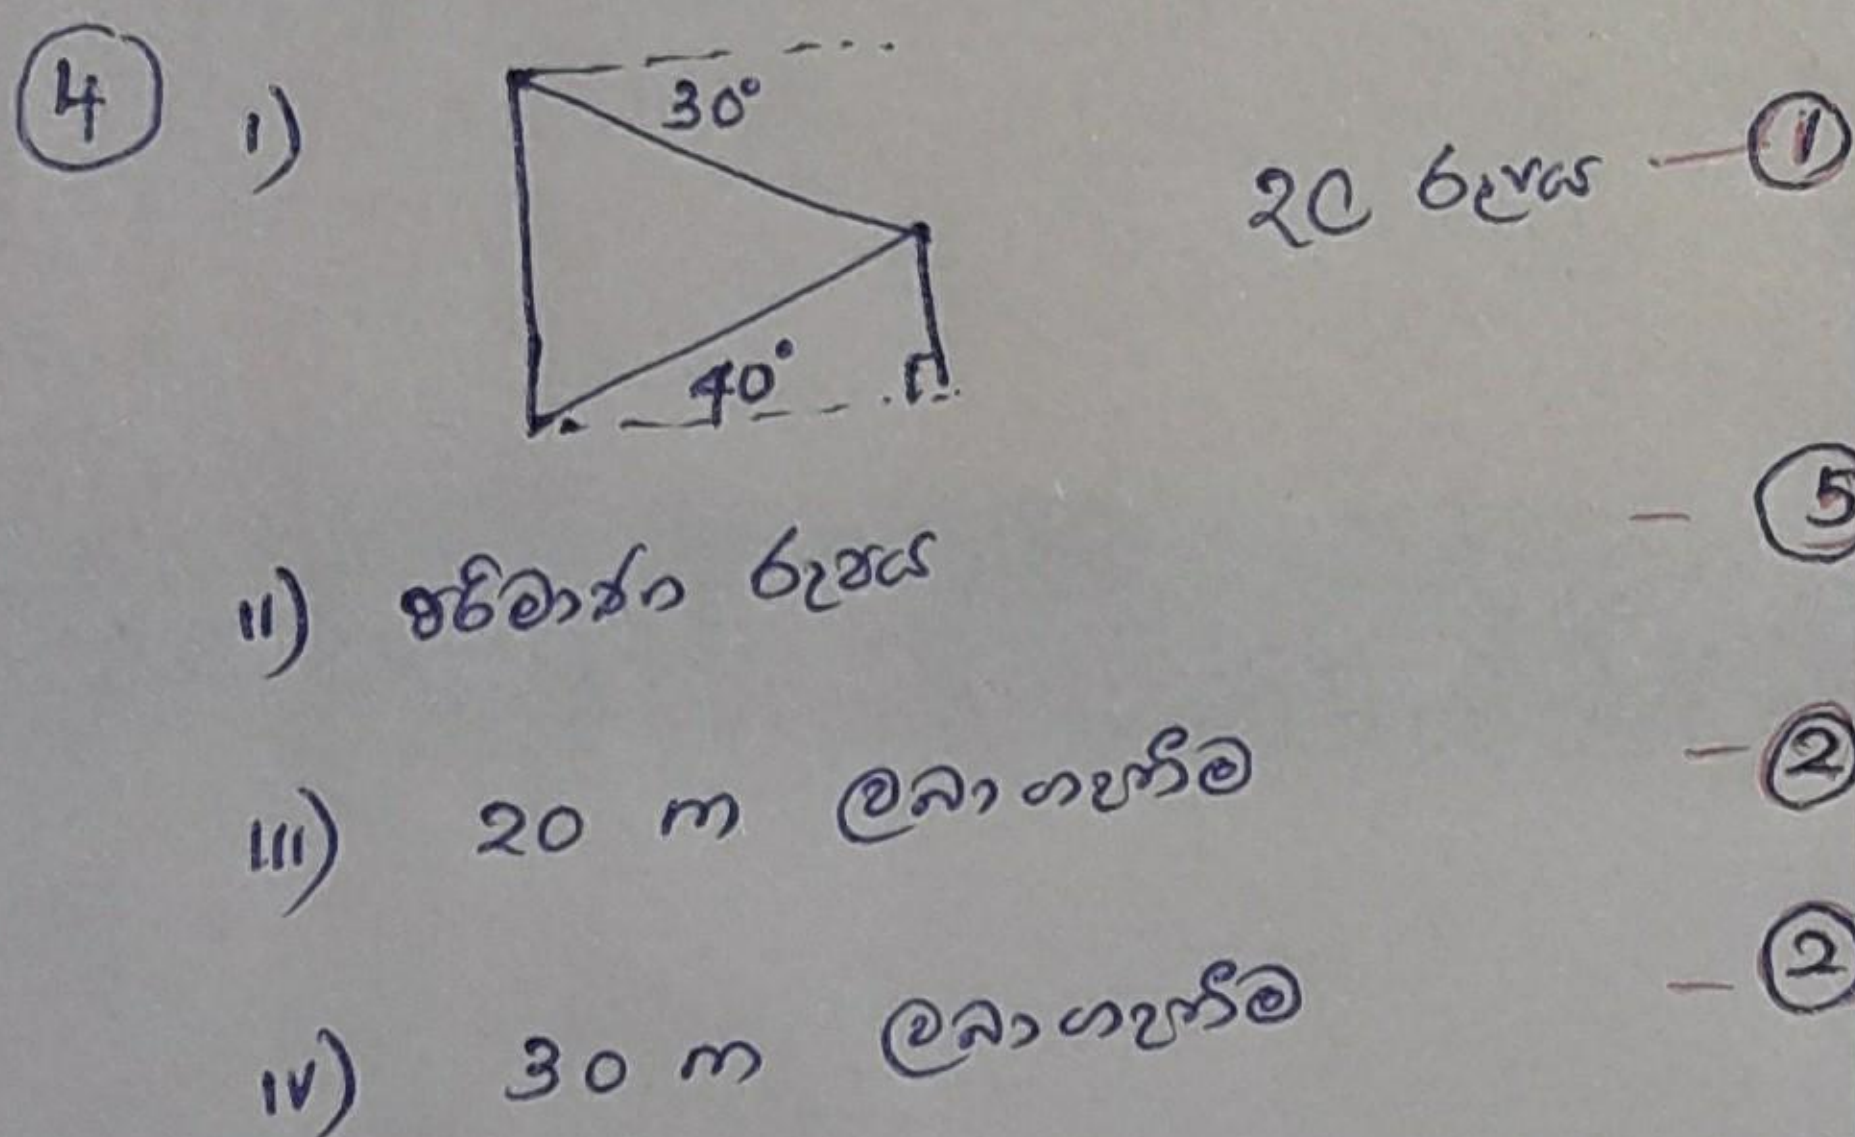 4 i) 30° දල රූපය — 1
40°
— 5
ii) පරිමාණ රූපය
iii) 20 m ලබාගැනීම — 2
iv) 30 m ලබාගැනීම — 2